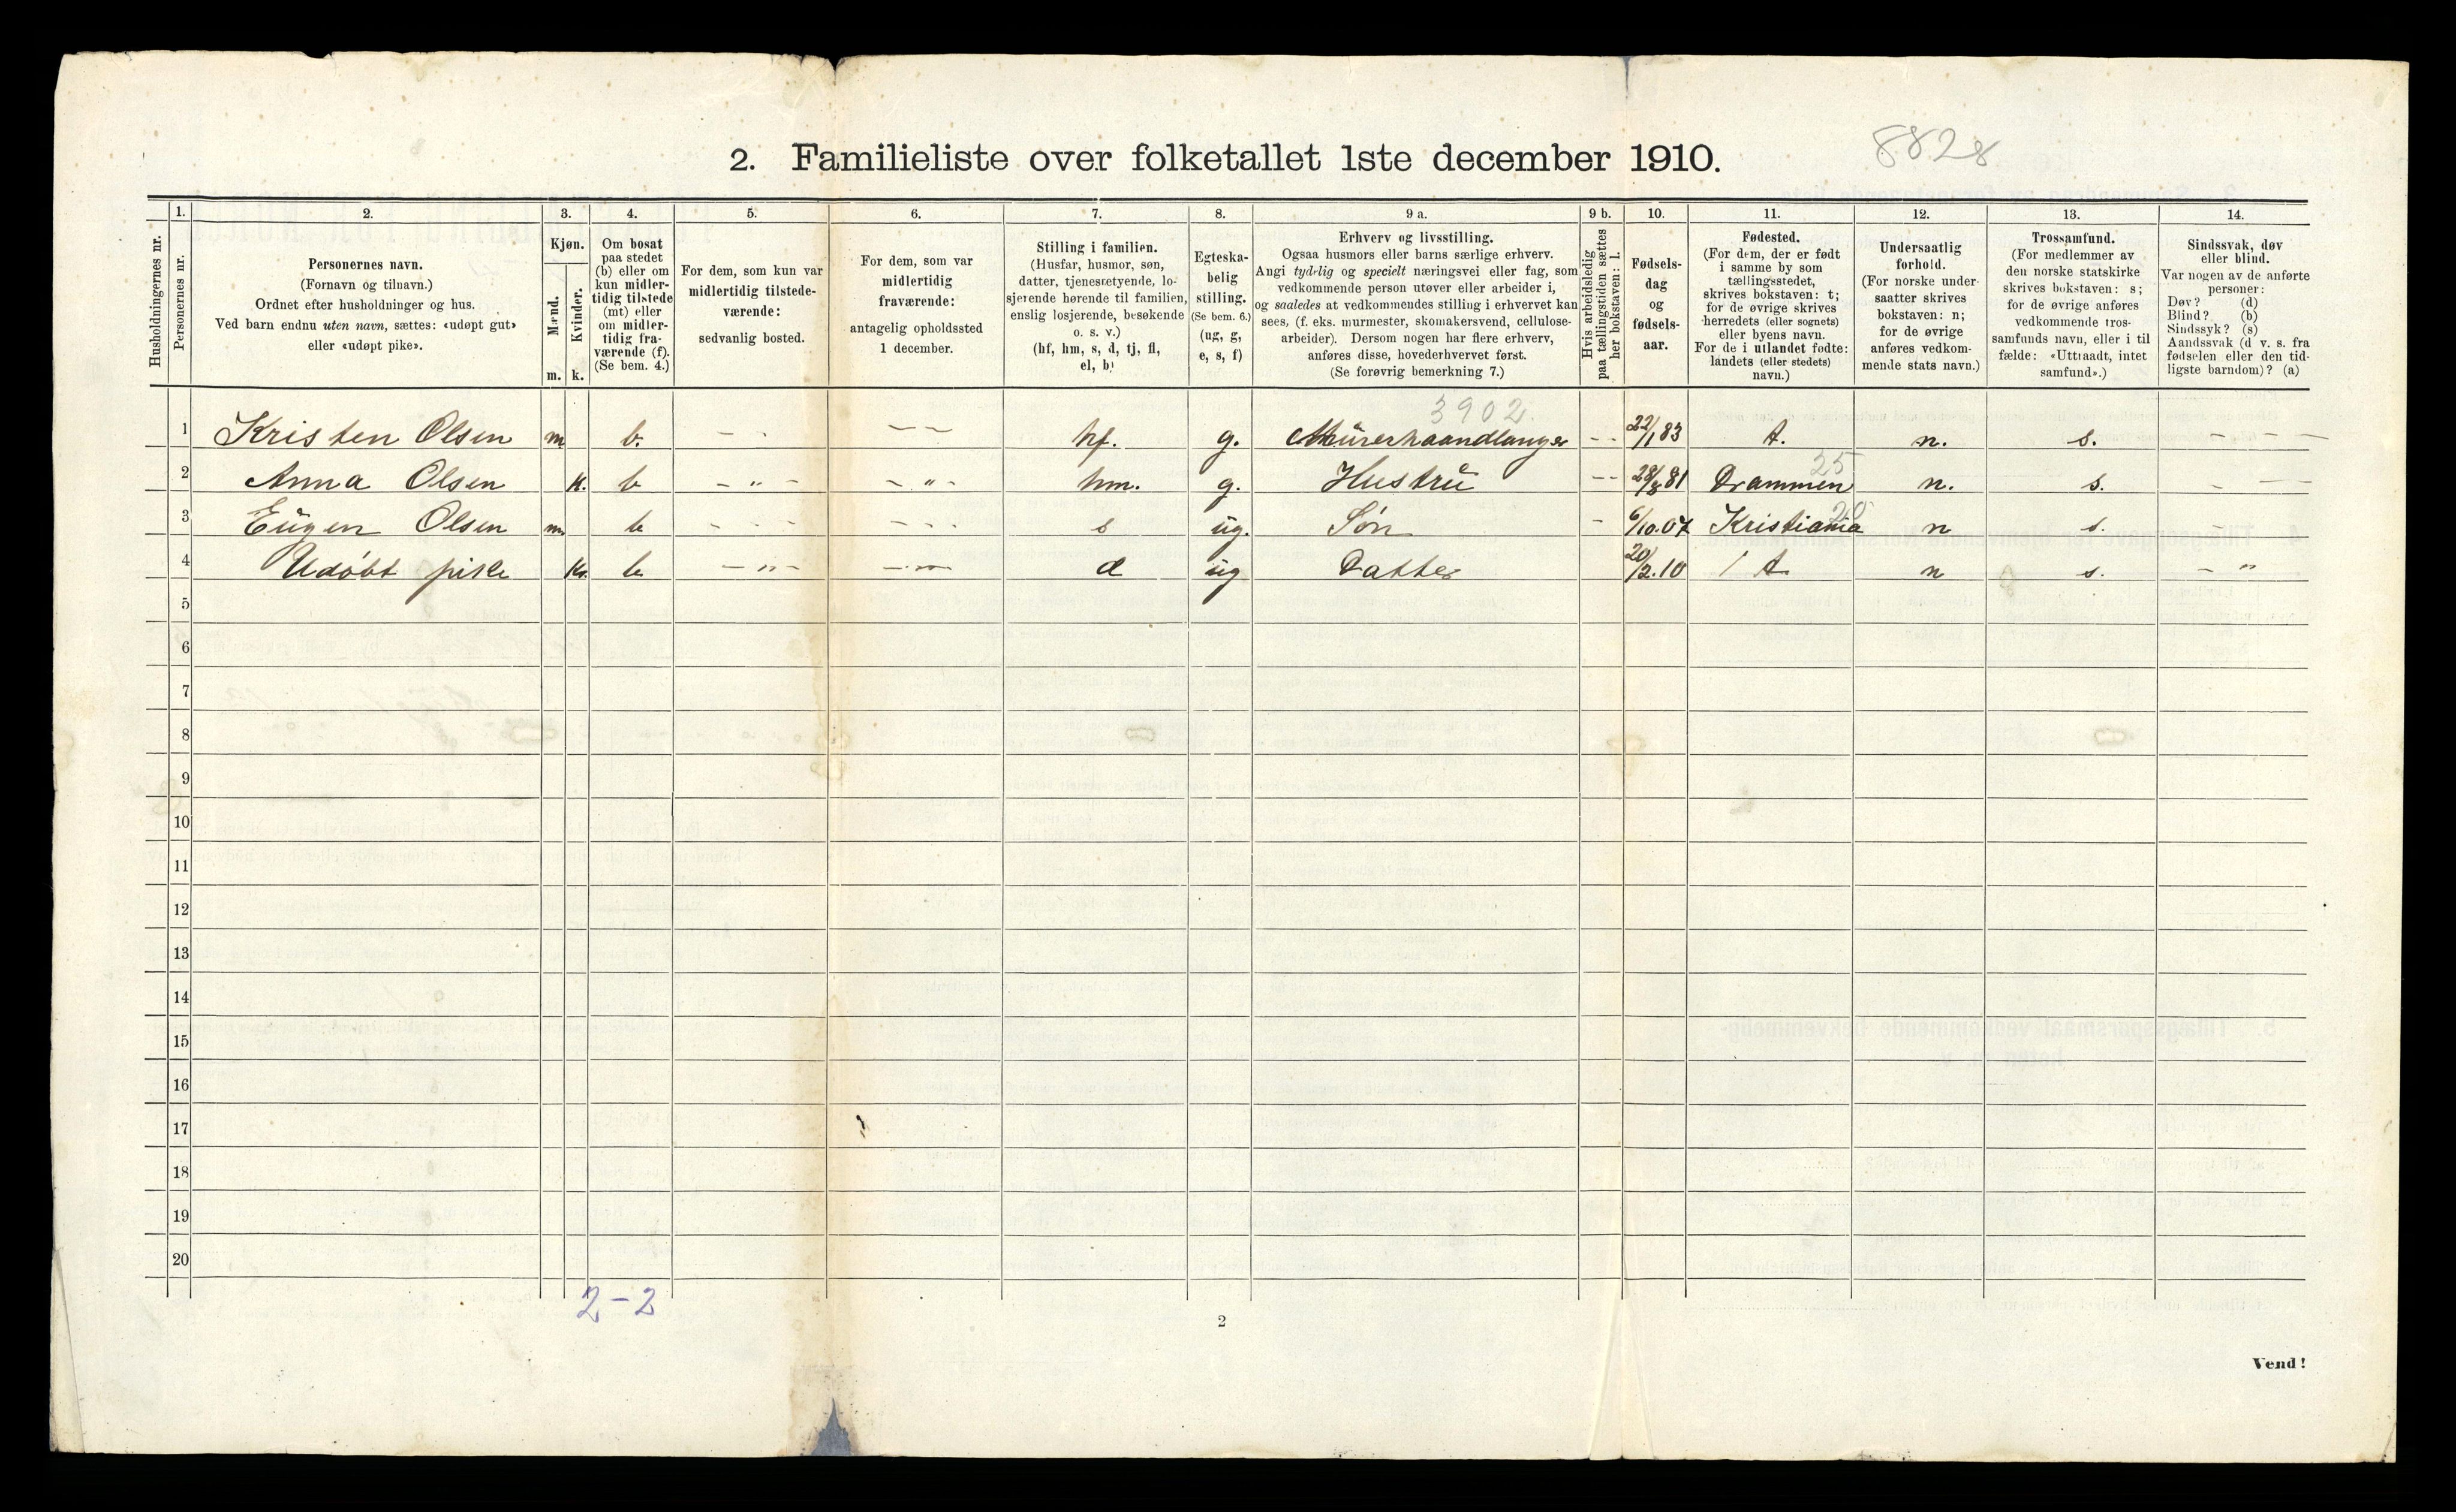 8828
2. Familieliste over folketallet 1ste december 1910.
Husholdningernes nr.
1.
Personernes nr.
2.
Personernes navn.
(Fornavn og tilnavn.)
Ordnet efter husholdninger og hus.
Ved barn endnu uten navn, sættes: «udøpt gut»
eller «udøpt pike».
3.
Kjøn.
Mænd.
Kvinder.
m. k.
4.
Om bosat
paa stedet
(b) eller om
kun midler-
tidig tilstede
(mt) eller
om midler-
tidig fra-
værende (f).
(Se bem. 4.)
5.
For dem, som kun var
midlertidig tilstede-
værende:
sedvanlig bosted.
6.
For dem, som var
midlertidig
fraværende:
antagelig opholdssted
1 december.
7.
Stilling i familien.
(Husfar, husmor, søn,
datter, tjenestetyende, lo-
sjerende hørende til familien,
enslig losjerende, besøkende
o. s. v.)
(hf, hm, s, d, tj, fl,
el, b)
8.
Egteska-
belig
stilling.
(Se bem. 6.)
(ug, g,
e, s, f)
9 a.
Erhverv og livsstilling.
Ogsaa husmors eller barns særlige erhverv.
Angi tydelig og specielt næringsvei eller fag, som
vedkommende person utøver eller arbeider i,
og saaledes at vedkommendes stilling i erhvervet kan
sees, (f. eks. murmester, skomakersvend, cellulose-
arbeider). Dersom nogen har flere erhverv,
anføres disse, hovederhvervet først.
(Se forøvrig bemerkning 7.)
9 b.
Hvis arbeidsledig
paa tællingstiden sættes
her bokstaven: l.
10.
Fødsels-
dag
og
fødsels-
aar.
11.
Fødested.
(For dem, der er født
i samme by som
tællingsstedet,
skrives bokstaven: t;
for de øvrige skrives
herredets (eller sognets)
eller byens navn.
For de i utlandet fødte:
landets (eller stedets)
navn.)
12.
Undersaatlig
forhold.
(For norske under-
saatter skrives
bokstaven: n;
for de øvrige
anføres vedkom-
mende stats navn.)
13.
Trossamfund.
(For medlemmer av
den norske statskirke
skrives bokstaven: s;
for de øvrige anføres
vedkommende tros-
samfunds navn, eller i til
fælde: «Uttraadt, intet
samfund».)
14.
Sindssvak, døv
eller blind.
Var nogen av de anførte
personer:
Døv? (d)
Blind? (b)
Sindssyk? (s)
Aandssvak (d v. s. fra
fødselen eller den tid-
ligste barndom)? (a)
3902.
1 Kristen Olsen m b. - - - - hf. g. Mürerhaandlanger - - 22/1 83 t. n. s. - - -
25
2 Anna Olsen k. b - " - - " - hm. g. Hustrü - - 28/8 81 Drammen n. s. - -
20
3 Eügen Olsen m b - - - - - - s üg. Søn - 6/10.07 Kristiania n s. -
4 Udøbt pike k. b - " - - " - d üg Datter 20/2.10 t n s. - "
5
6
7
8
9
10
11
12
13
14
15
16
17
18
19
20
2-2
2
Vend!